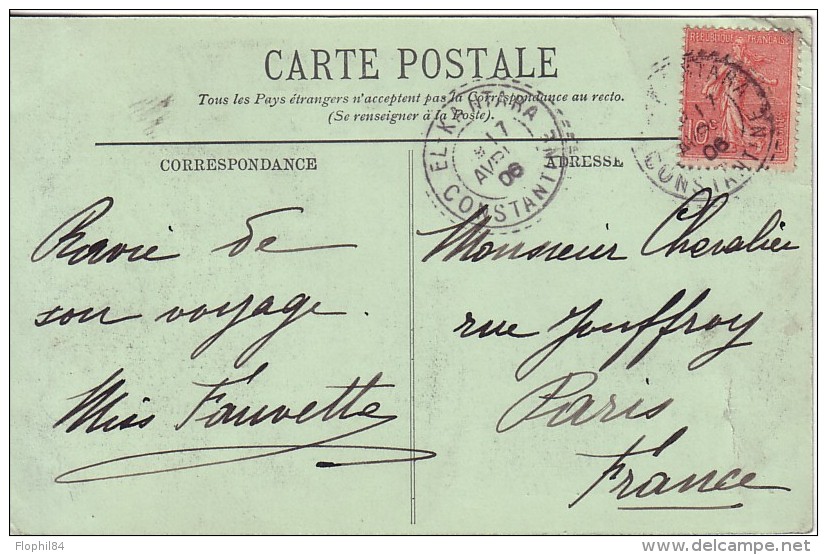 CARTE POSTALE
Tous les Pays étrangers n'acceptent pas la Correspondance au recto.
(Se renseigner à la Poste).
REPUBLIQUE FRANÇAISE
10c
EL-KANTARA
17
AVRIL
06
CONSTANTINE
CORRESPONDANCE
Ravie de
son voyage.
Miss Fauvette
ADRESSE
Monsieur Chevalier
rue Jouffroy
Paris
France
Flophil84
delcampe.net